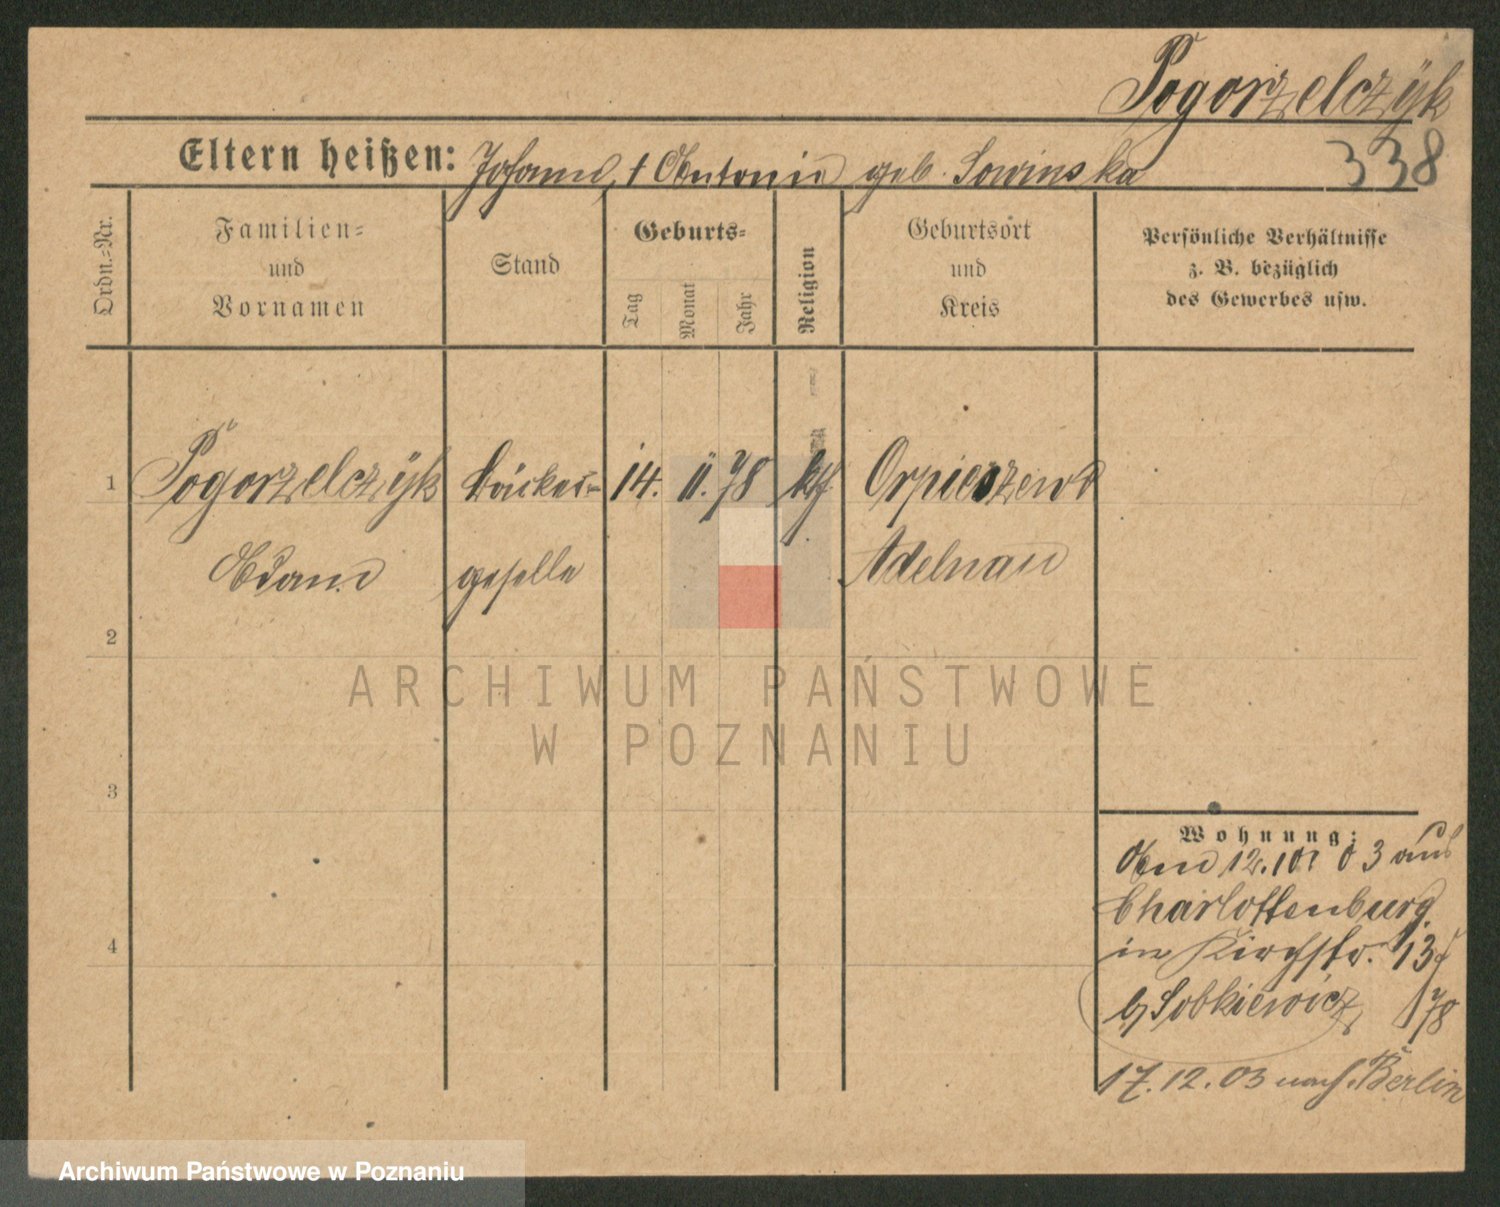 Pogorzelczyk
338
Eltern heißen: Johann, † Antonie geb. Sowinska
Ordn.=Nr.
Familien=
und
Vornamen
Stand
Geburts=
Tag
Monat
Jahr
Religion
Geburtsort
und
Kreis
Persönliche Verhältnisse
z. B. bezüglich
des Gewerbes usw.
1 Pogorzelczyk Bäcker= 14. 11. 78 kth. Orpiszewo
Adam geselle Adelnau
2
ARCHIWUM PAŃSTWOWE
W POZNANIU
3
Wohnung:
Am 12.10. 03 aus
Charlottenburg
in Kirchstr. 13
b/ Sobkiewicz 78
4
17.12.03 nach Berlin
Archiwum Państwowe w Poznaniu